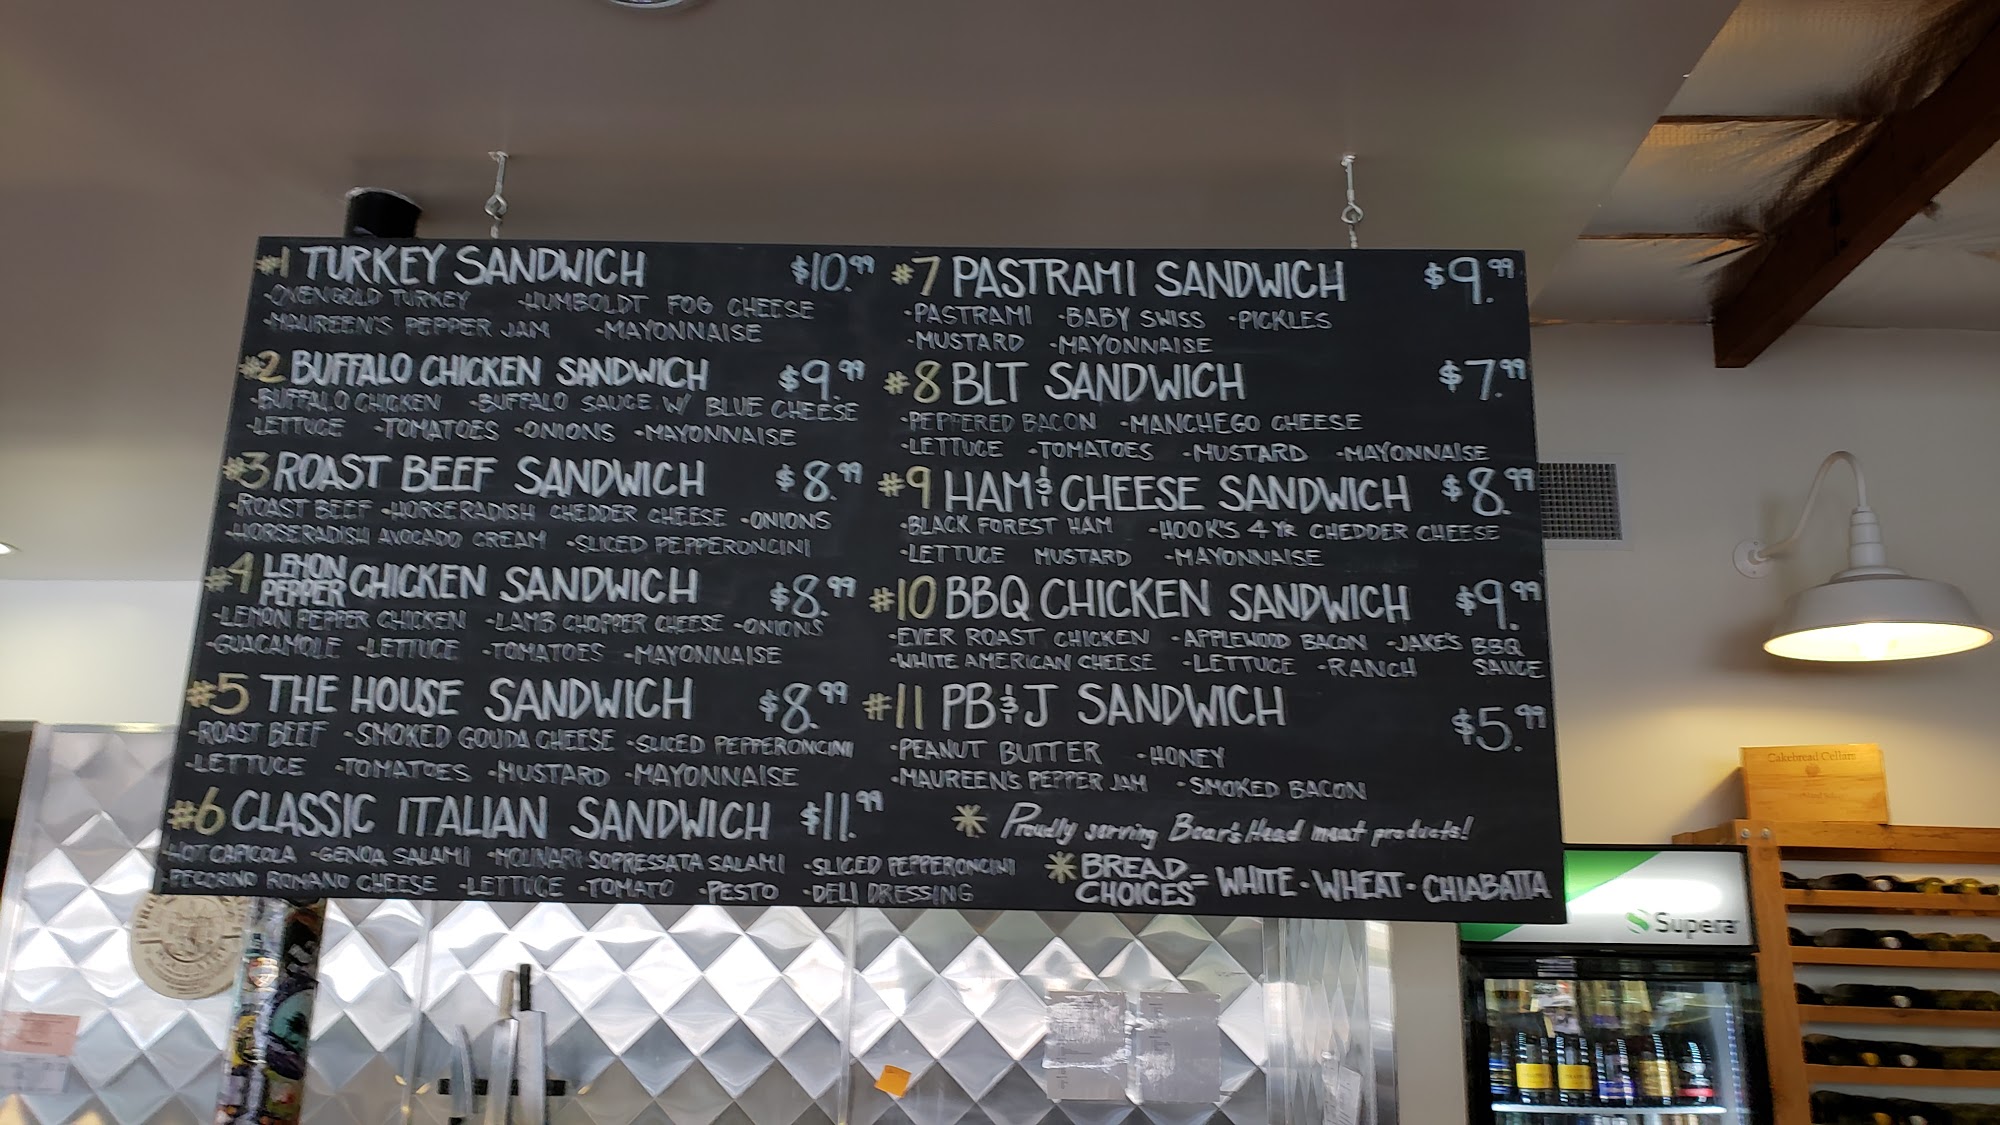 #1 TURKEY SANDWICH $10.99
-OVENGOLD TURKEY -HUMBOLDT FOG CHEESE
-MAUREEN'S PEPPER JAM -MAYONNAISE
#2 BUFFALO CHICKEN SANDWICH $9.99
-BUFFALO CHICKEN -BUFFALO SAUCE W/ BLUE CHEESE
-LETTUCE -TOMATOES -ONIONS -MAYONNAISE
#3 ROAST BEEF SANDWICH $8.99
-ROAST BEEF -HORSERADISH CHEDDER CHEESE -ONIONS
-HORSERADISH AVOCADO CREAM -SLICED PEPPERONCINI
#4 LEMON PEPPER CHICKEN SANDWICH $8.99
-LEMON PEPPER CHICKEN -LAMB CHOPPER CHEESE -ONIONS
-GUACAMOLE -LETTUCE -TOMATOES -MAYONNAISE
#5 THE HOUSE SANDWICH $8.99
-ROAST BEEF -SMOKED GOUDA CHEESE -SLICED PEPPERONCINI
-LETTUCE -TOMATOES -MUSTARD -MAYONNAISE
#6 CLASSIC ITALIAN SANDWICH $11.99
-HOT CAPICOLA -GENOA SALAMI -MOLINARI SOPRESSATA SALAMI -SLICED PEPPERONCINI
-PECORINO ROMANO CHEESE -LETTUCE -TOMATO -PESTO -DELI DRESSING
#7 PASTRAMI SANDWICH $9.99
-PASTRAMI -BABY SWISS -PICKLES
-MUSTARD -MAYONNAISE
#8 BLT SANDWICH $7.99
-PEPPERED BACON -MANCHEGO CHEESE
-LETTUCE -TOMATOES -MUSTARD -MAYONNAISE
#9 HAM & CHEESE SANDWICH $8.99
-BLACK FOREST HAM -HOOK'S 4 YR CHEDDER CHEESE
-LETTUCE MUSTARD -MAYONNAISE
#10 BBQ CHICKEN SANDWICH $9.99
-EVER ROAST CHICKEN -APPLEWOOD BACON -JAKE'S BBQ
-WHITE AMERICAN CHEESE -LETTUCE -RANCH SAUCE
#11 PB & J SANDWICH $5.99
-PEANUT BUTTER -HONEY
-MAUREEN'S PEPPER JAM -SMOKED BACON
* Proudly serving Boar's Head meat products!
* BREAD CHOICES = WHITE - WHEAT - CHIABATTA
Cakebread Cellars
Supera